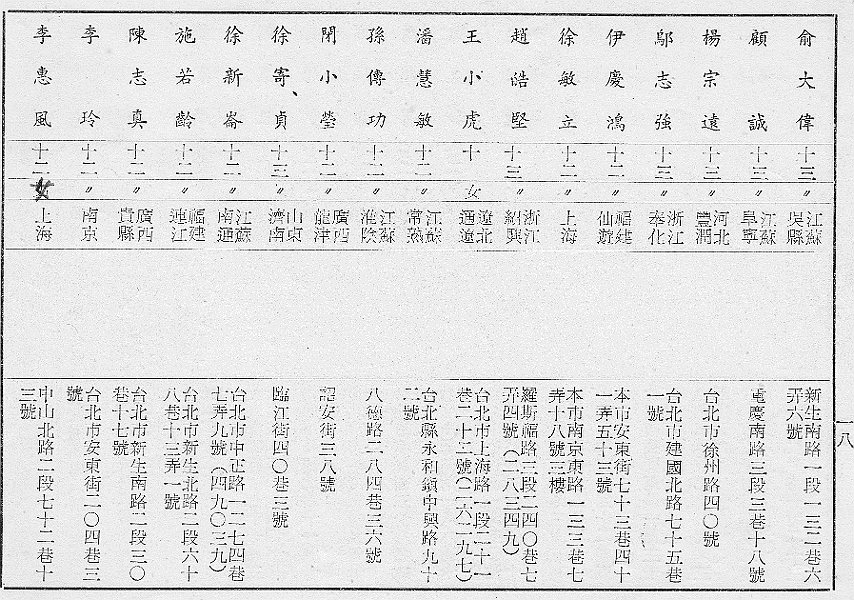 俞大偉 十三 〃 江蘇吳縣 新生南路一段一三二巷六弄六號
顧誠 十三 〃 江蘇阜寧 重慶南路三段三巷十八號
楊宗遠 十三 〃 河北豐潤 台北市徐州路四〇號
鄔志強 十三 〃 浙江奉化 台北市建國北路七十五巷一號
伊慶鴻 十二 〃 福建仙遊 本市安東街七十三巷四十一弄五十三號
徐敏立 十二 〃 上海 本市南京東路一三三巷七弄十八號三樓
趙皓堅 十三 〃 浙江紹興 羅斯福路三段二四〇巷七弄四號（二八三四九）
王小虎 十 女 遼北通遼 台北市上海路一段二十一巷二十二號（二六二九七）
潘慧敏 十二 〃 江蘇常熟 台北縣永和鎮中興路九十二號
孫傳功 十二 〃 江蘇淮陰 八德路二八四巷三六號
閉小瑩 十二 〃 廣西龍津 詔安街三八號
徐寄貞 十三 〃 山東濟南 臨江街四〇巷三號
徐新崙 十二 〃 江蘇南通 台北市中正路一二七四巷七弄九號（四九〇三九）
施若齡 十二 〃 福建連江 台北市新生北路二段六十八巷十三弄一號
陳志真 十二 〃 廣西貴縣 台北市新生南路二段三〇巷十七號
李玲 十二 〃 南京 台北市安東街二〇四巷三號
李惠風 十二 女 上海 中山北路二段七十二巷十三號
一八